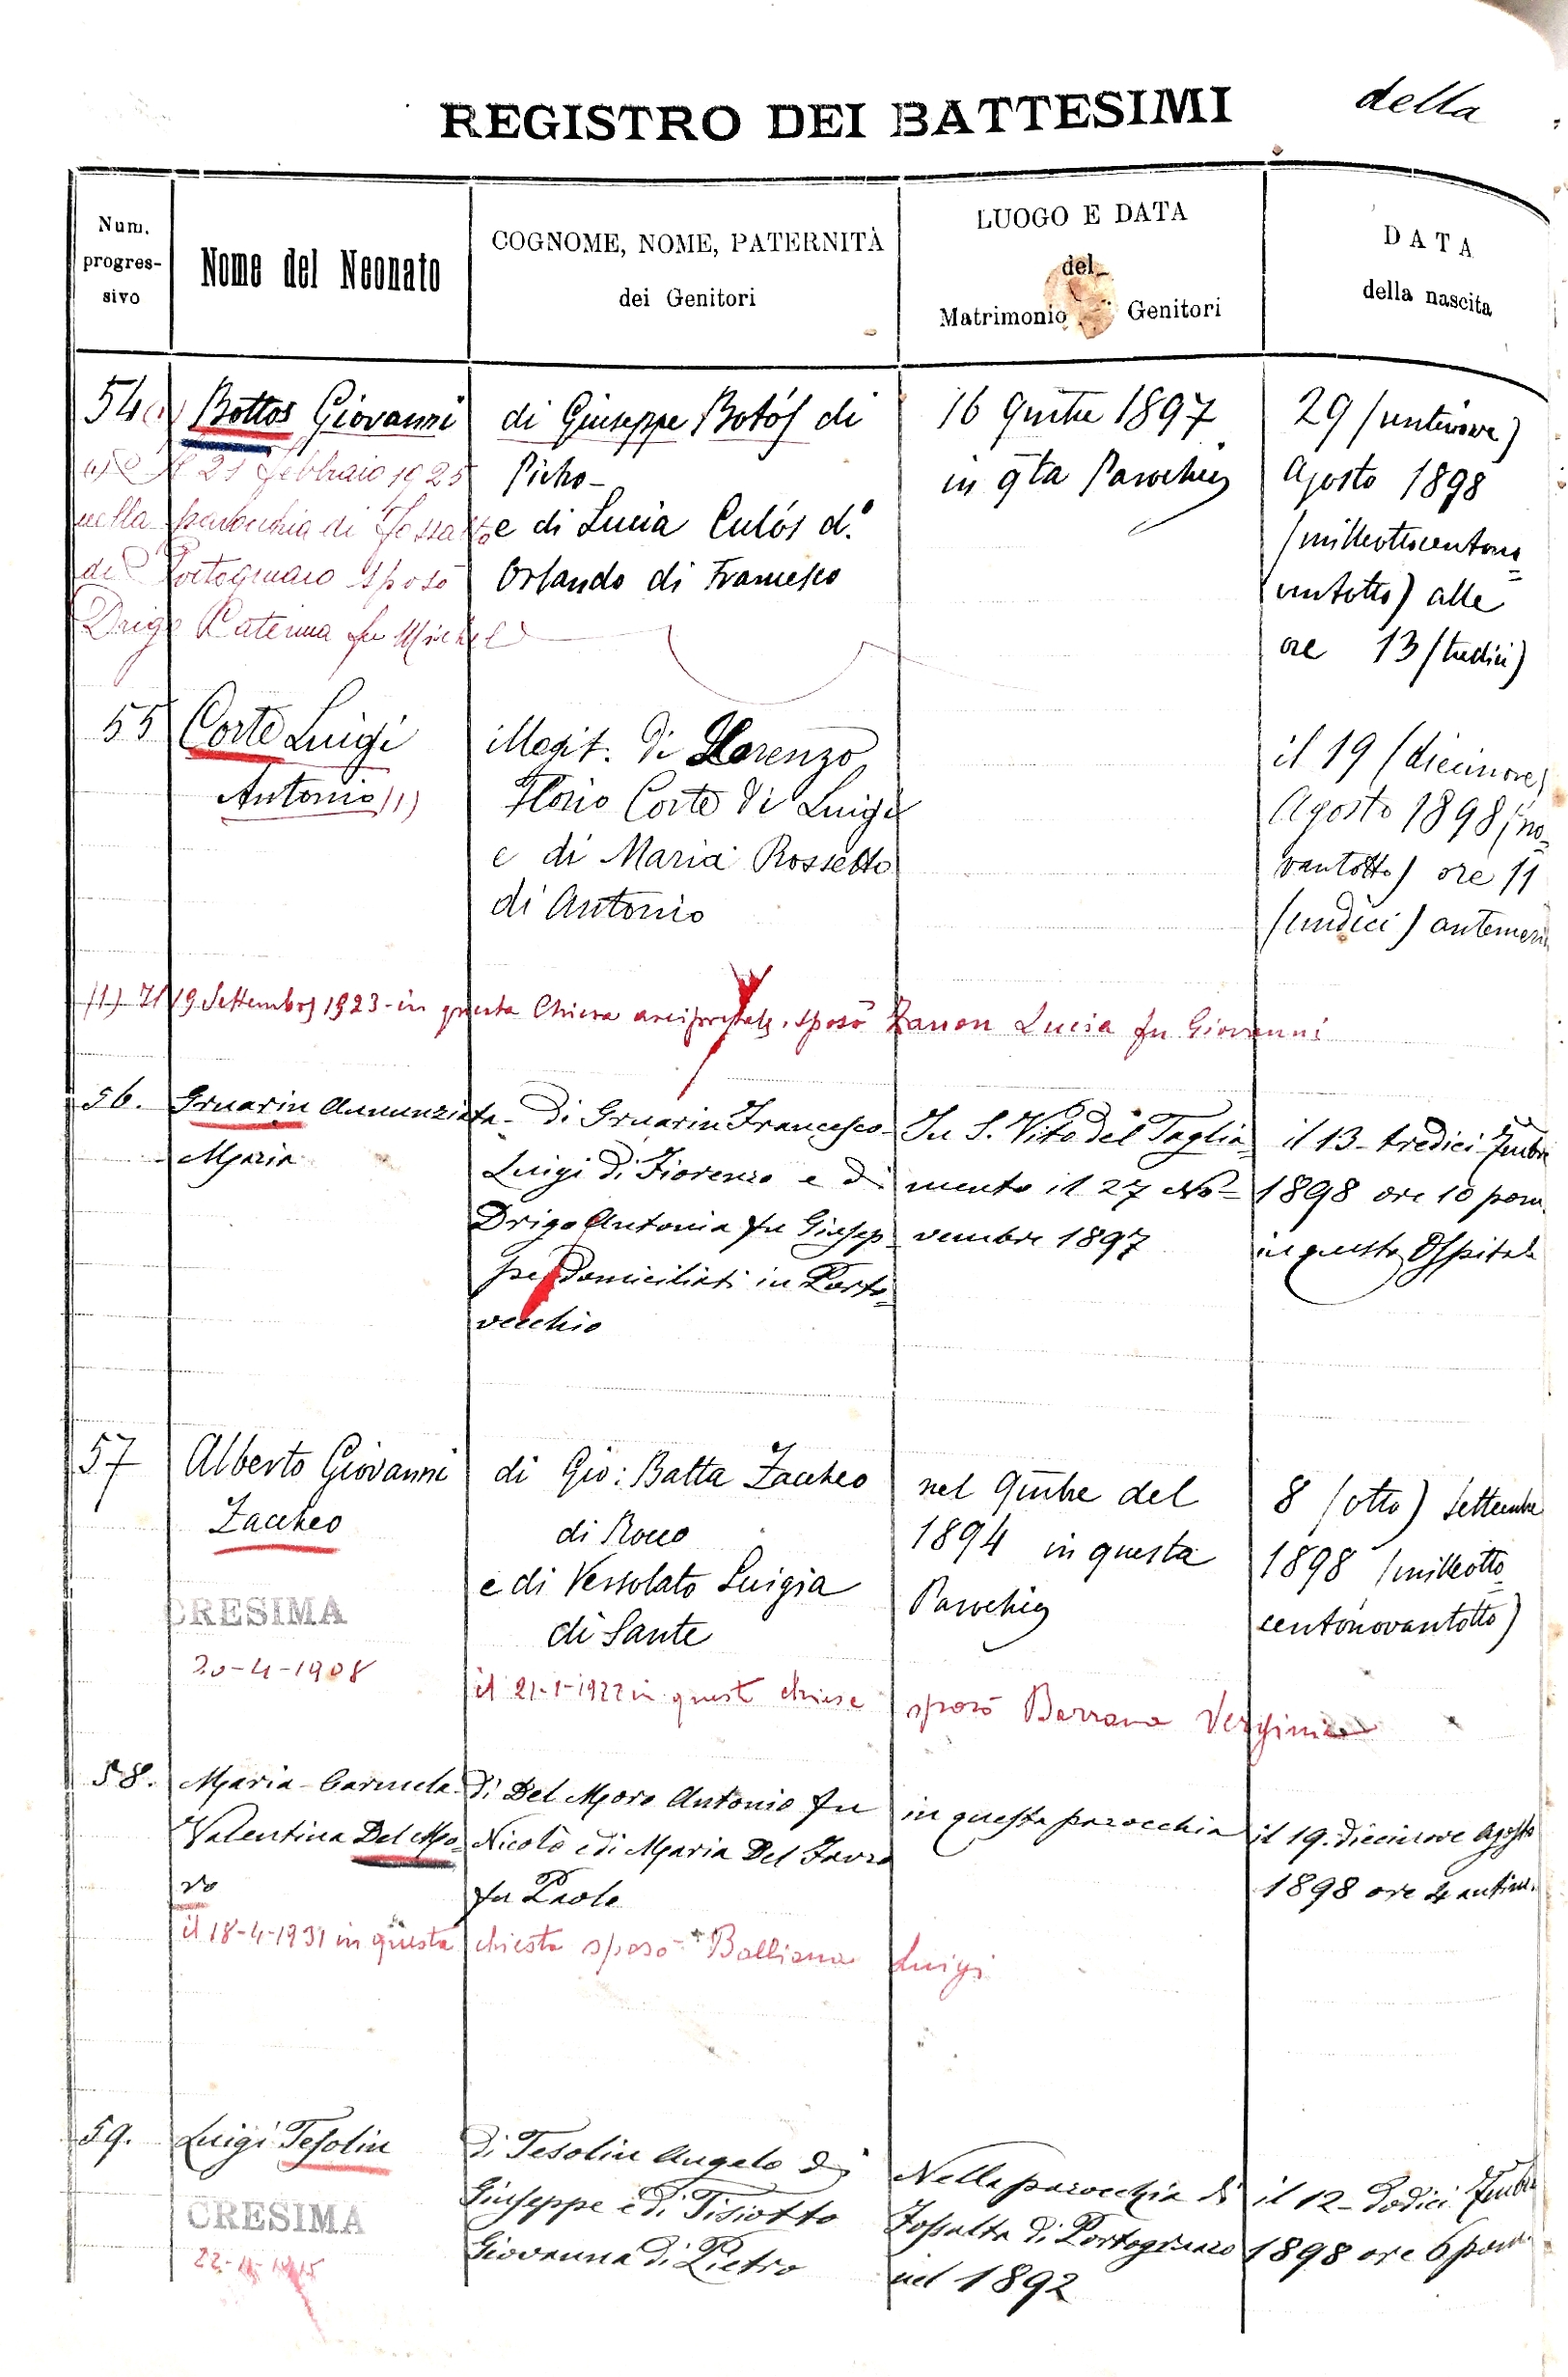 REGISTRO DEI BATTESIMI
della
Num.
progres-
sivo
Nome del Neonato
COGNOME, NOME, PATERNITÀ
dei Genitori
LUOGO E DATA
del
Matrimonio Genitori
DATA
della nascita
54 (1)
Bottos Giovanni
21 febbraio 1925
nella parrocchia di Fossalta
di Portogruaro sposò
Drigo Caterina fu Michele
di Giuseppe Botós di
Pietro-
e di Lucia Culós d.º
Orlando di Francesco
16 9mbre 1897
in qta Parochia
29 (ventinove)
Agosto 1898
(milleottocentono=
vantotto) alle
ore 13 (tredici)
55
Corte Luigi
Antonio (1)
illegit. di Lorenzo
Florio Corte di Luigi
e di Maria Rossetto
di Antonio
il 19 (diecinove)
Agosto 1898 (no=
vantotto) ore 11
(undici) antemeri
(1) Il 19 Settembre 1923 - in questa Chiesa arcipretale, sposò Zanon Lucia fu Giovanni
56.
Gruarin Annunziata-
Maria
Di Gruarin Francesco-
Luigi di Fiorenzo e di
Drigo Antonia fu Giusep
pe domiciliati in Porto=
vecchio
In S. Vito del Taglia=
mento il 27 No=
vembre 1897
il 13- tredici 7mbre
1898 ore 10 pom.
in questo Ospitale
57
Alberto Giovanni
Zaccheo
CRESIMA
20-4-1908
di Gio: Batta Zaccheo
di Rocco
e di Versolato Luigia
di Sante
nel 9mbre del
1894 in questa
Parochia
8 (otto) Settembre
1898 (milleotto=
centonovantotto)
il 21-1-1922 in questa chiesa sposò Barrana Verginia
58.
Maria-Carmela-
Valentina Del Mo=
ro
di Del Moro Antonio fu
Nicolò e di Maria Del Favro
fu Paolo
in questa parocchia
il 19. diecinove Agosto
1898 ore 4 antim.
il 18-4-1931 in questa chiesa sposò Balliana Luigi
59.
Luigi Tesolin
CRESIMA
di Tesolin Angelo di
Giuseppe e di Tisiotto
Giovanna di Pietro
Nella parocchia di
Fossalta di Portogruaro
nel 1892
il 12- dodici 7mbre
1898 ore 6 pom.